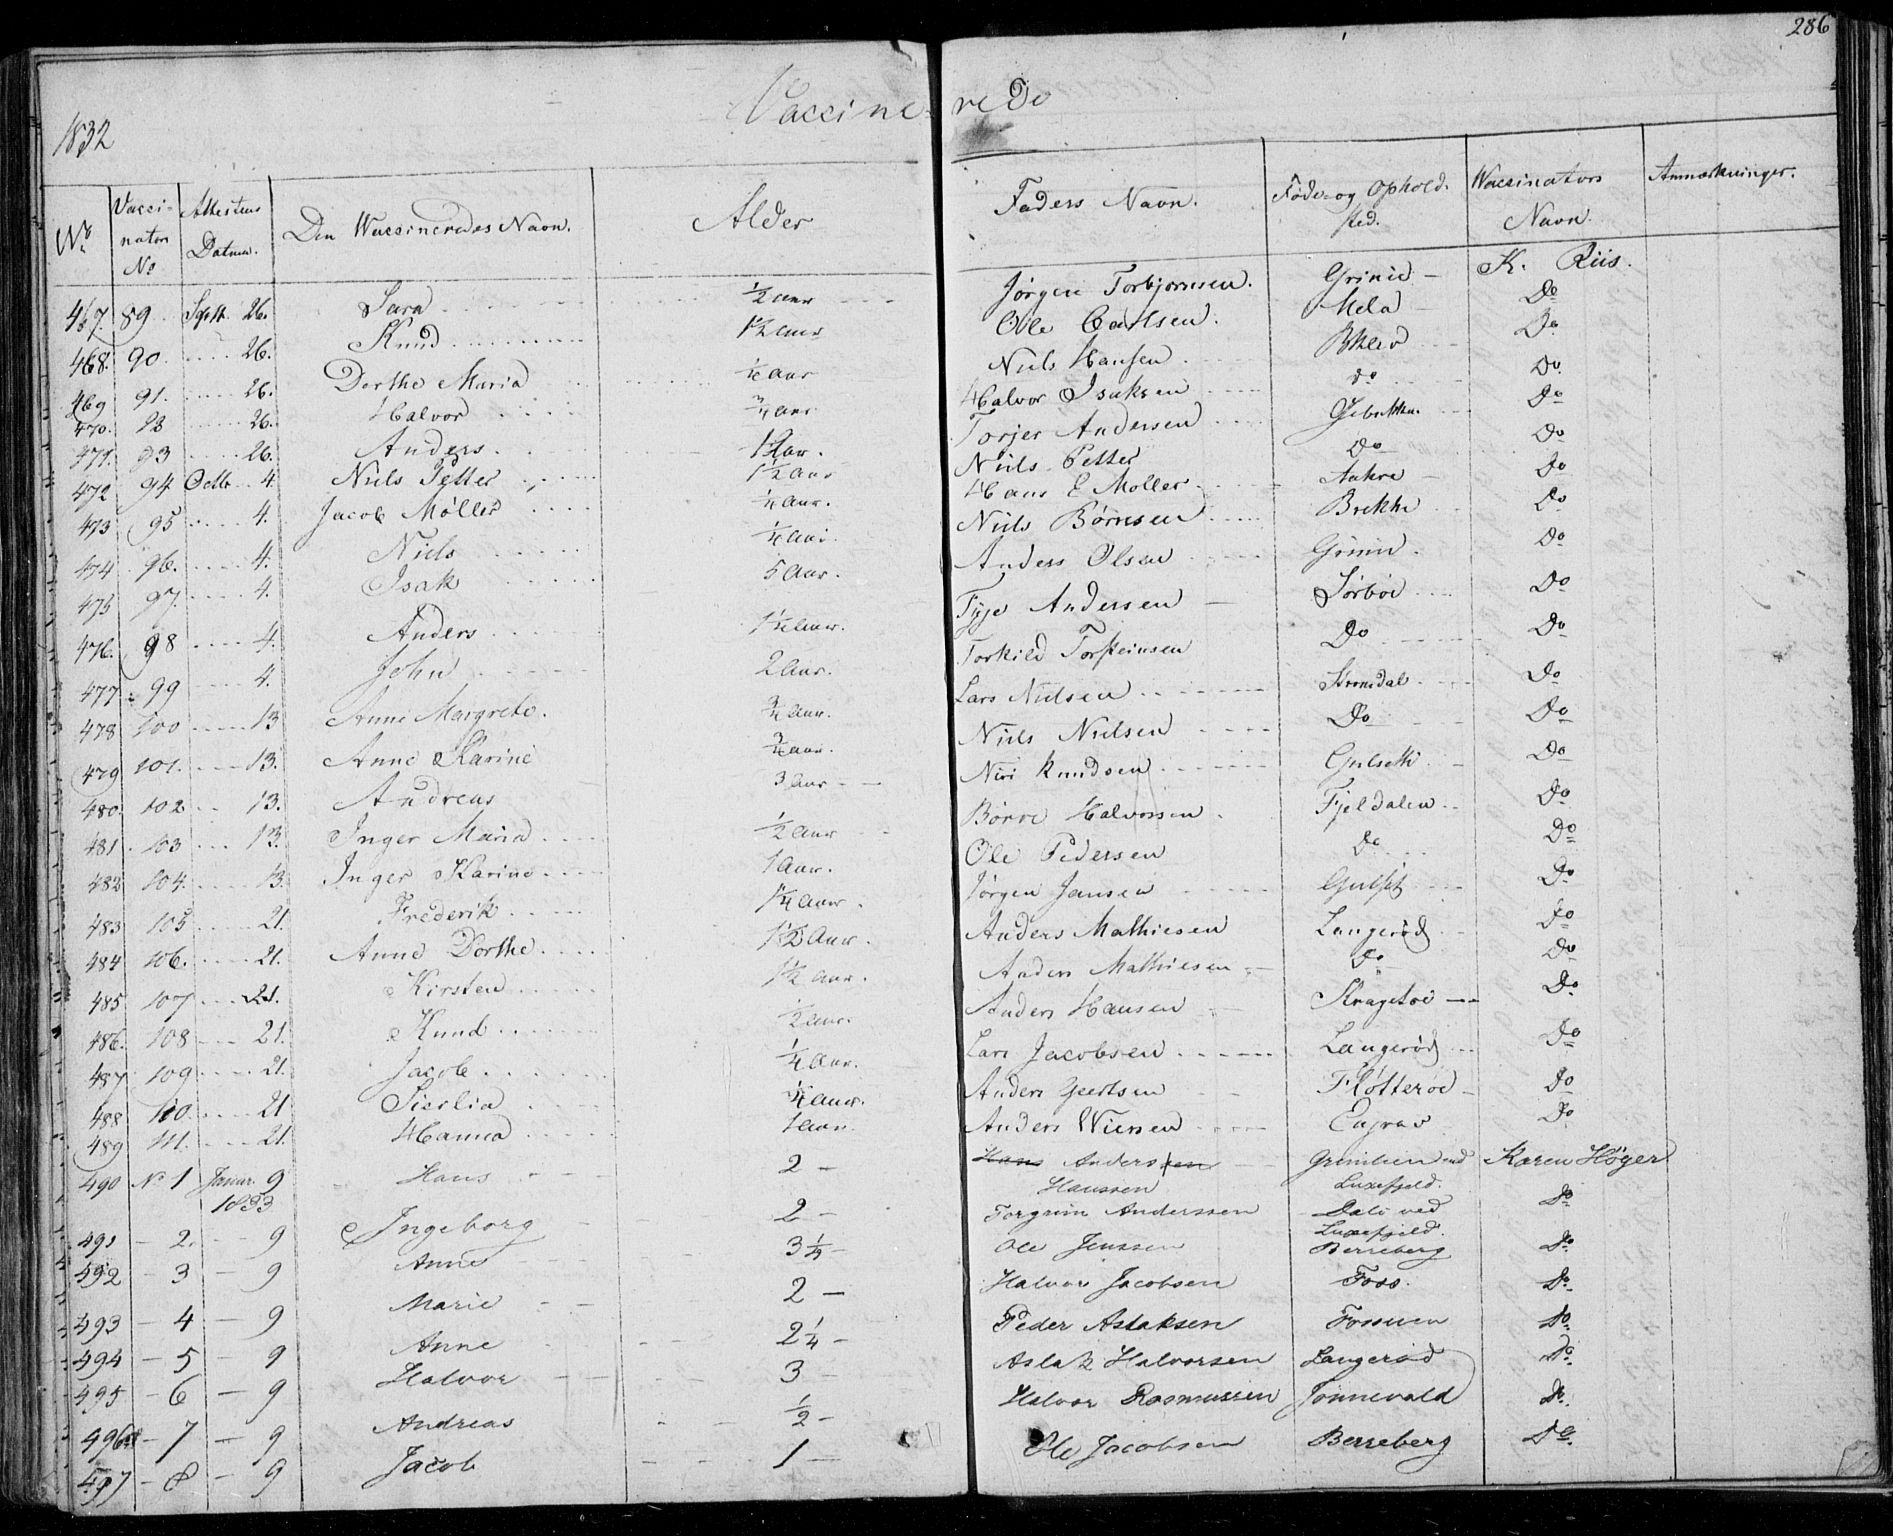 286
Vaccinerede
1832
No Vaccinators No Attestens Datum. Den Vaccineredes Navn. Alder Faders Navn. Føde og Ophold. sted. Vaccinators Navn. Anmærkninger.
467. 89 Septr. 26. Sara ½ aar Jørgen Torbjørnsen. Grinie K. Riis.
468. 90. 26. Knud 1½ aar Ole Carlsen. Mela Do
469 91. 26. Dorthe Maria ¼ aar Niels Hansen Do
470. 26. Halvor ¾ aar Halvor Isaksen do Do
471. 93 26. Anders Torjer Andersen Do
472 94 Octbr. 4 Niels Petter 1½ aar Niels Petter Do Do
473 95 4. Jacob Møller ¼ aar. Hans E Møller Aakre Do
474 96. 4. Niels ¼ aar. Niels Børresen Brekke Do
475 97. 4. Isak 5 aar. Anders Olsen Grinie. Do
476. 98 4. Anders 1¼ aar. Andersen Sørbøe Do
477 99 4. John 2 aar. Torkild Torsteinsen Do Do
478 100 13 Anne Margrete. ¾ aar. Lars Nielsen Do
479 101. 13. Anne Karine ¾ aar. Niels Nielsen Do Do
480. 102 13. Andreas 3 aar Niri Knudsen Gulseth Do
481. 103 13. Inger Maria ½ aar Børre Halvorsen Fjeldalen Do
482 104. 13. Inger Karine 1 aar. Ole Pedersen Do Do
483 105 21. Frederik 1¼ aar. Jørgen Jansen Gulset Do
484 106. 21. Anne Dorthe 1½ aar. Anders Mathiesen Langerød Do
485 107 21. Kirsten 1½ aar. Anders Mathiesen Do Do
486. 108 21. Knud ½ aar. Anders Hansen Kragetoe Do
487 109 21. Jacob ¼ aar. Lars Jacobsen Langerød Do
488 110. 21 Siselia ¼ aar. Anders Geertsen Fløtterøe Do
489 111. 21. Hanna 1 aar. Anders Wiersen Engrav Do
490 No 1 Januar 9 1833 Hans 2 Hans Anderssen Hanssen Grinilien ved Luxefjeld. Karen Höyer
491 2. 9 Ingeborg 2 Torgrim Anderssen Dale ved Luxefjeld. Do
492 3 9 Anne Ole Jenssen Berreberg Do
493 4 9 Marie 2 Halvor Jacobsen Foss. Do
494 5 9 Anne 2¼ Peder Aslaksen Fossum Do
495 6 9 Halvor 3 Aslak Halvorsen Langerød Do
496 7 9 Andreas ½ Halvor Rasmussen Jønnevald Do
497 8 9 Jacob 1 Ole Jacobsen Berreberg Do